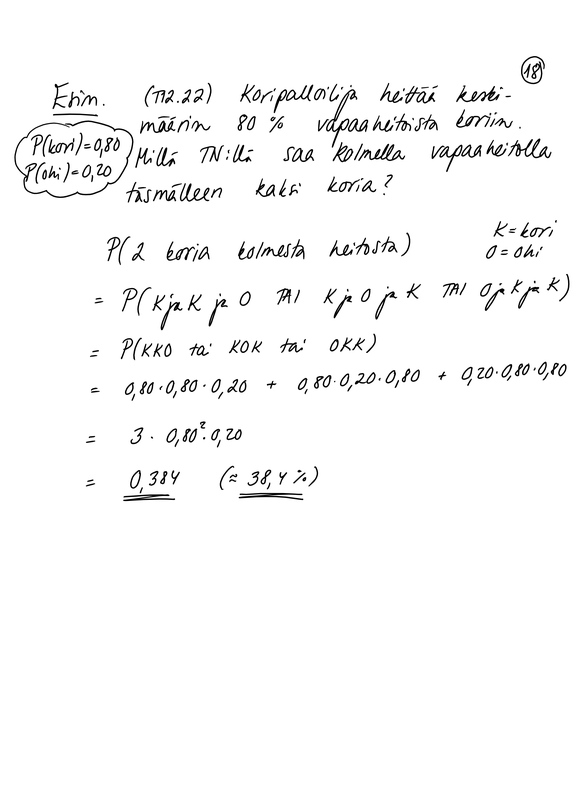 18
Esim. (T12.22) Koripalloilija heittää keski-
määrin 80 % vapaaheitoista koriin.
P(kori)=0,80
Millä TN:llä saa kolmella vapaaheitolla
P(ohi)=0,20
täsmälleen kaksi koria?
K=kori
P(2 koria kolmesta heitosta)
O=ohi
= P(K ja K ja O TAI K ja O ja K TAI O ja K ja K)
= P(KKO tai KOK tai OKK)
= 0,80·0,80·0,20 + 0,80·0,20·0,80 + 0,20·0,80·0,80
= 3 · 0,80²·0,20
= 0,384 (≈ 38,4 %)